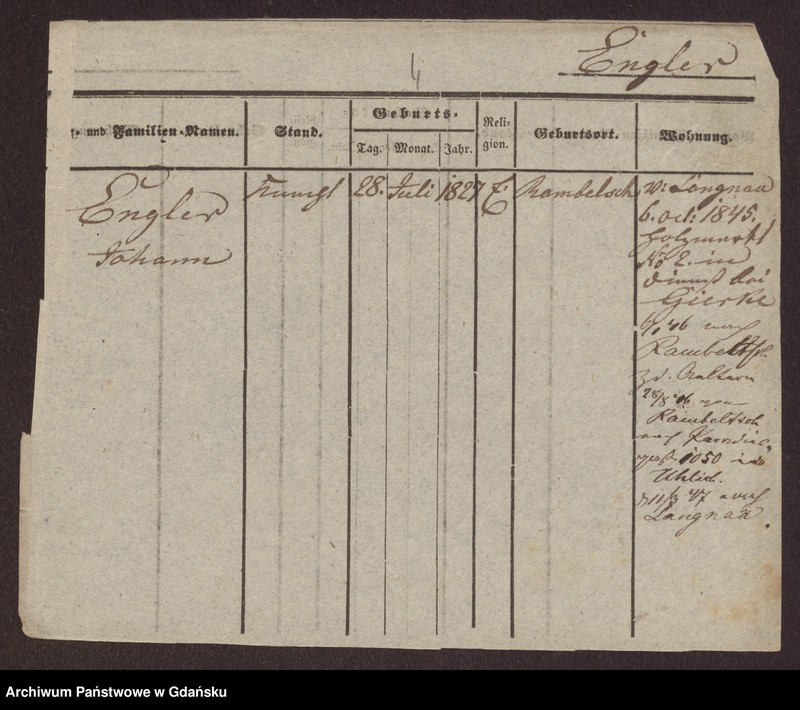 Engler
4
und Familien-Namen.
Stand.
Geburts-
Tag. Monat. Jahr.
Reli-
gion.
Geburtsort.
Wohnung.
Engler
Johann
Knecht
28. Juli 1827
E
Rambelsch
v: Langnau
6. oct: 1845.
Holzmarkt
No 2. in
Dienst bei
Gierke
46 nach
Rambeltsch
zd. Aeltern
28/8 46 von
Rambeltsch
nach
1050
Uhlich.
11/3 47 nach
Langnau.
Archiwum Państwowe w Gdańsku